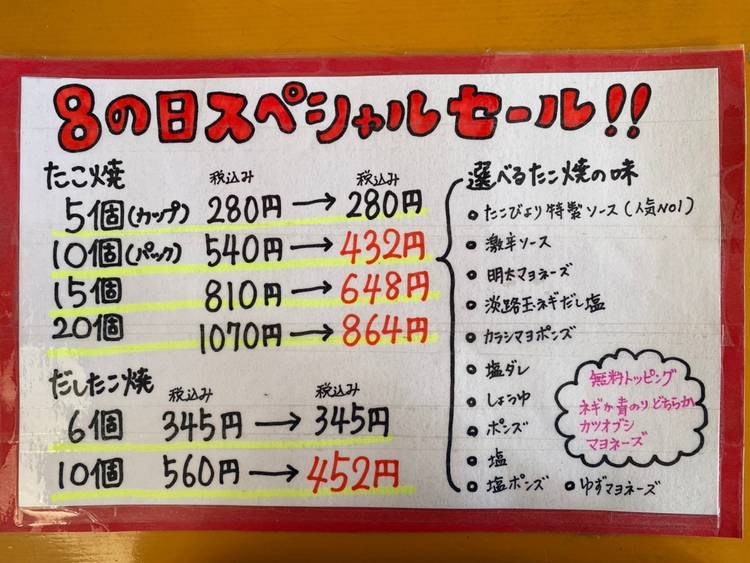 8の日スペシャルセール!!
たこ焼 税込み 税込み
5個(カップ) 280円→280円
10個(パック) 540円→432円
15個 810円→648円
20個 1070円→864円
だしたこ焼 税込み 税込み
6個 345円→345円
10個 560円→452円
選べるたこ焼の味
たこびより特製ソース(人気NO1)
激辛ソース
明太マヨネーズ
淡路玉ネギだし塩
カラシマヨポンズ
塩ダレ
しょうゆ
ポンズ
塩
塩ポンズ ゆずマヨネーズ
無料トッピング
ネギか青のりどちらか
カツオブシ
マヨネーズ